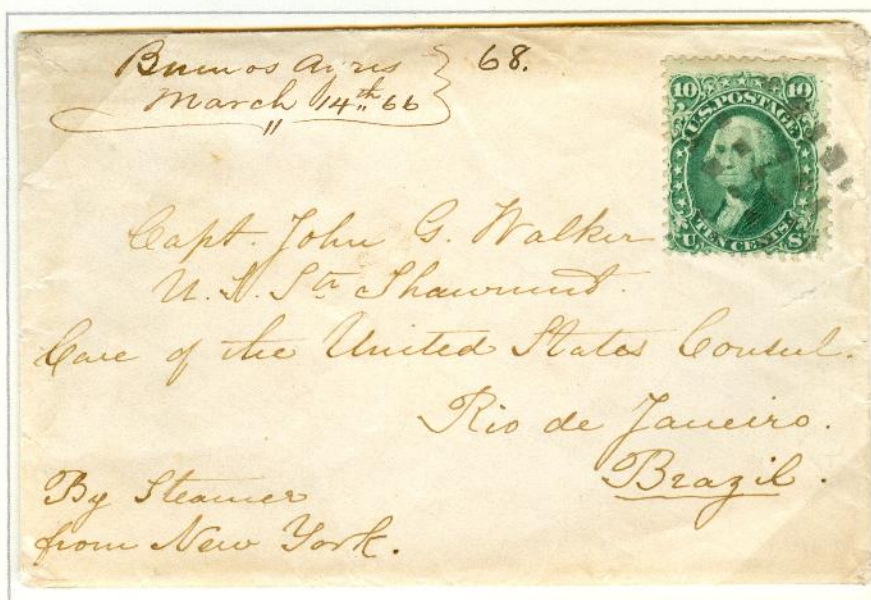 Buenos Aires 68.
March 14th 66
10 10
U.S. POSTAGE
TEN CENTS
U S
Capt. John G. Walker
U. S. Str Shawmut.
Care of the United States Consul.
Rio de Janeiro.
Brazil.
By Steamer
from New York.